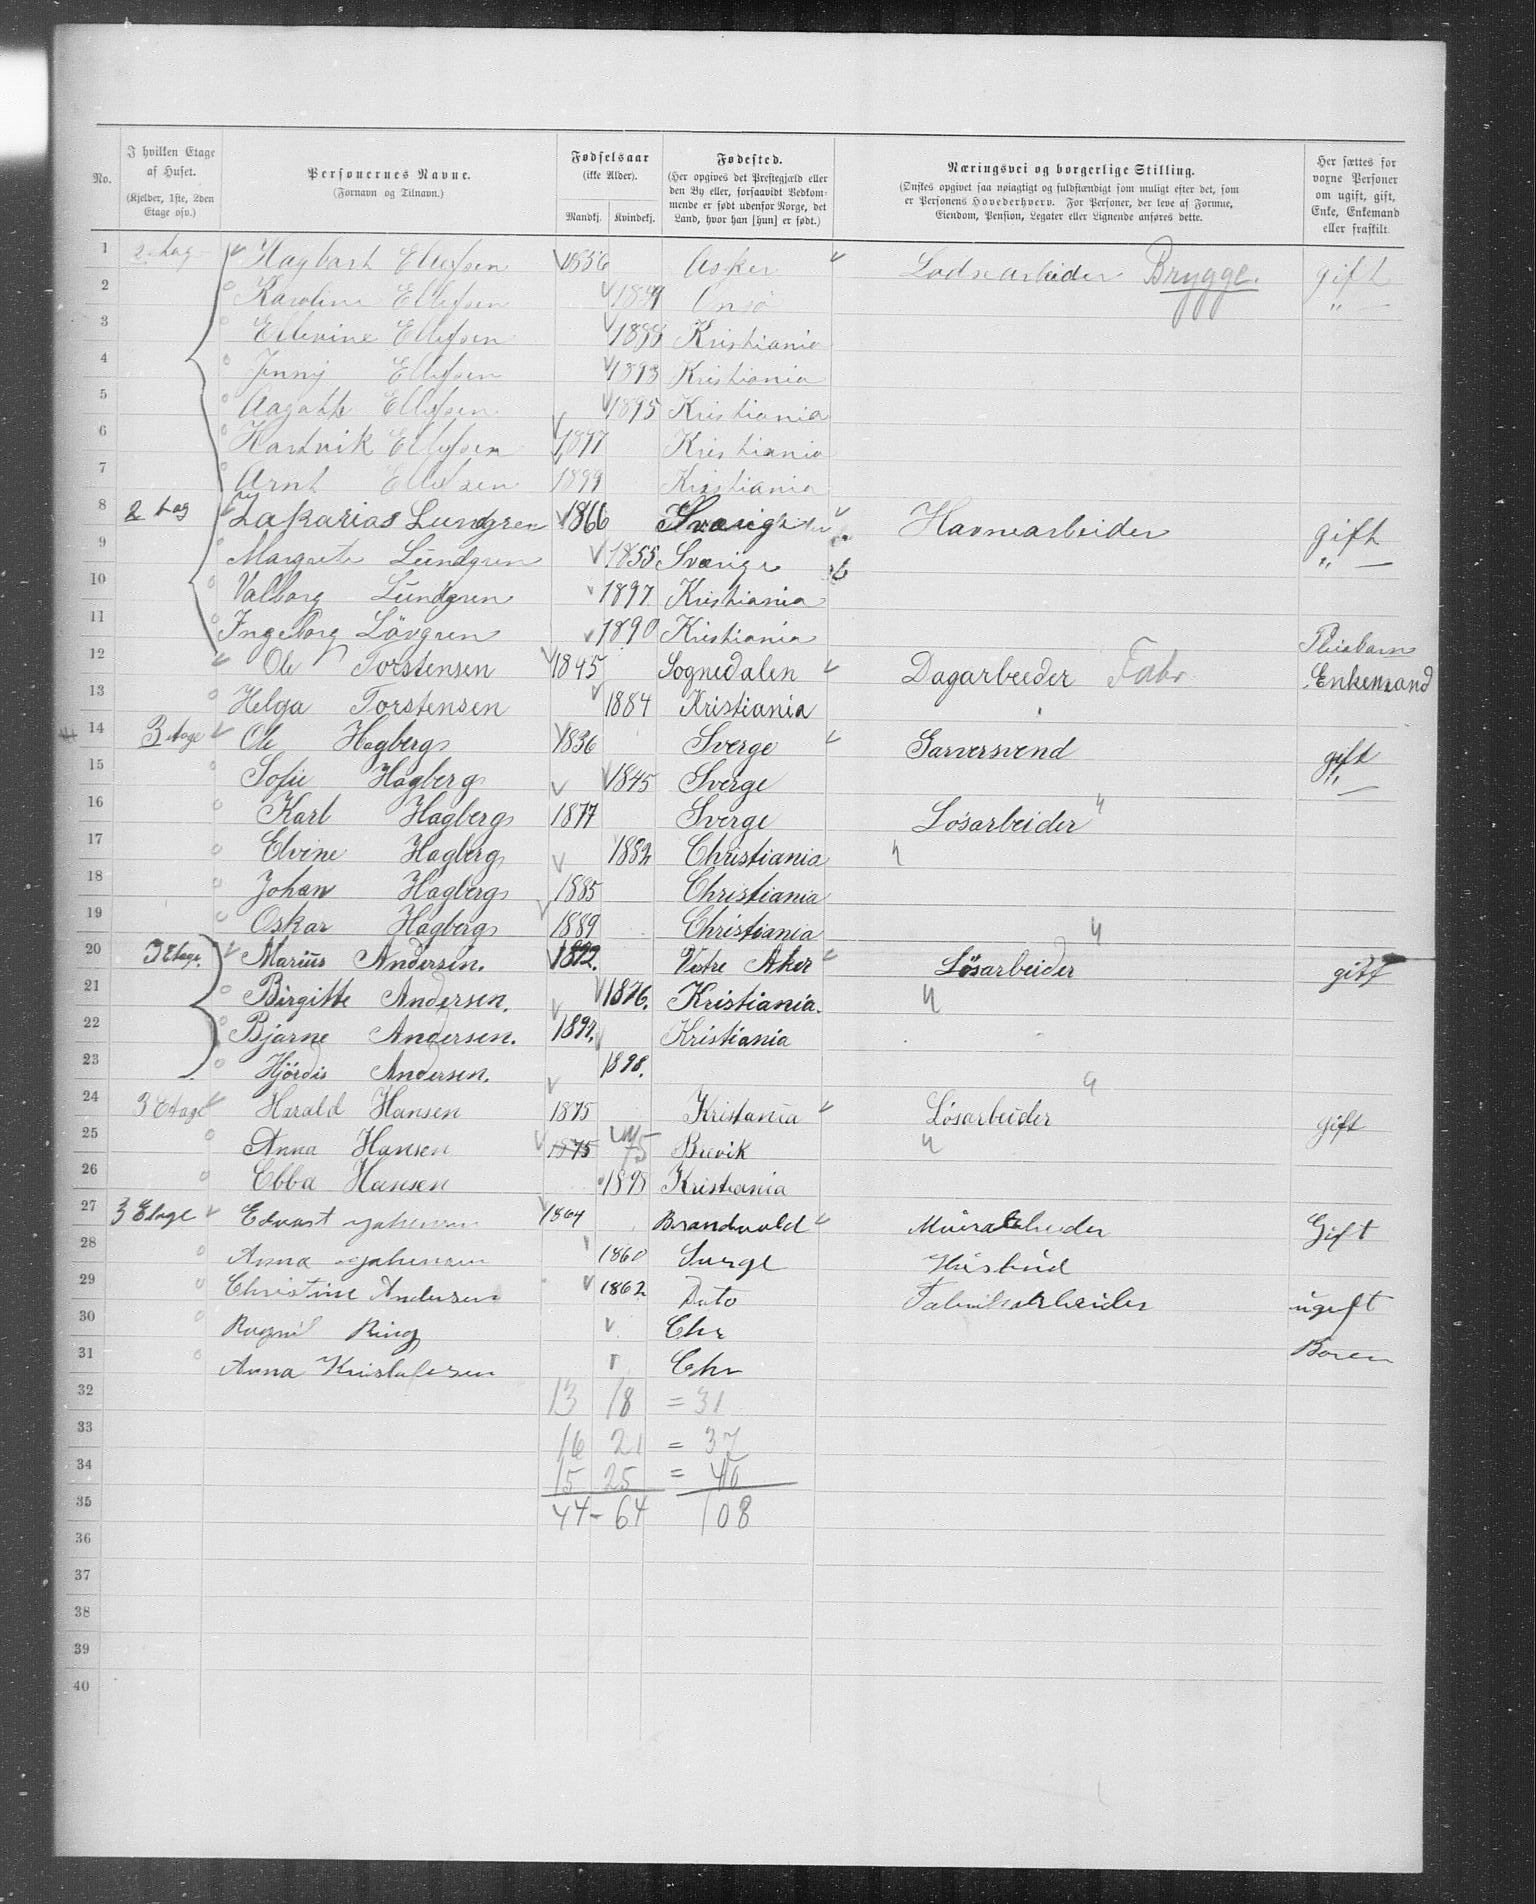 No. I hvilken Etage af Huset. (Kjelder, 1ste, 2den Etage osv.) Personernes Navne. (Fornavn og Tilnavn.) Fødselsaar (ikke Alder). Mandkj. Kvindekj. Fødested. (Her opgives det Prestegjæld eller den By eller, forsaavidt Vedkommende er født udenfor Norge, det Land, hvor han [hun] er født.) Næringsvei og borgerlige Stilling. (Ønskes opgivet saa nøiagtigt og fuldstændigt som muligt efter det, som er Personens Hovederhverv. For Personer, der leve af Formue, Eiendom, Pension, Legater eller Lignende anføres dette. Her sættes for voxne Personer om ugift, gift, Enke, Enkemand eller fraskilt.
1 Hagbart Ellefsen 1856 Asker Lodsearbeider Brygge. gift
2 Karoline Ellefsen Onsö "
3 Ellevine Ellefsen Kristiania
4 Jenny Ellefsen 1893 Kristiania
5 Aagathe Ellefsen 1895 Kristiania
6 Hartvik Ellefsen 1897 Kristiania
7 Arnt Ellefsen 1899 Kristiania
8 2 Zakarias Lundgren 1866 Sverige Havnearbeider gift
9 Margrete Lundgren 1855 Sverige "
10 Valborg Lundgren 1897 Kristiania
11 Ingeborg Lövgren 1890 Kristiania Pleiebarn
12 Ole Torstensen 1845 Sognedalen Dagarbeider Fabr. Enkemand
13 Helga Torstensen 1884 Kristiania
14 3 Etage Ole Hagberg 1836 Sverge Garversvend gift
15 Sofie Hagberg 1845 Sverge "
16 Karl Hagberg 1877 Sverge Lösarbeider
17 Elvine Hagberg 1882 Christiania
18 Johan Hagberg 1885 Christiania
19 Oskar Hagberg 1889 Christiania
20 3 Etage. Marius Andersen. 1872. Vestre Aker Lösarbeider gift
21 Birgitte Andersen. 1876. Kristiania.
22 Bjarne Andersen. 1897. Kristiania
23 Hjördis Andersen. 1898.
24 3 Etage Harald Hansen 1875 Kristania Lösarbeider gift
25 Anna Hansen 1875 75 Brevik
26 Ebba Hansen 1898 Kristiania
27 3 Etage Edvart 1864 Brandvold Murarbeider Gift
28 Anna 1860 Hüsbüd
29 Christine Andersen 1862 Dito Fabrikarbeider ugift
30 Ragnil Ring Chr
31 Anna Kristofersen Chr
32 13 18 = 31
33 16 21 = 37
34 15 25 = 40
35 44 - 64 108
36
37
38
39
40